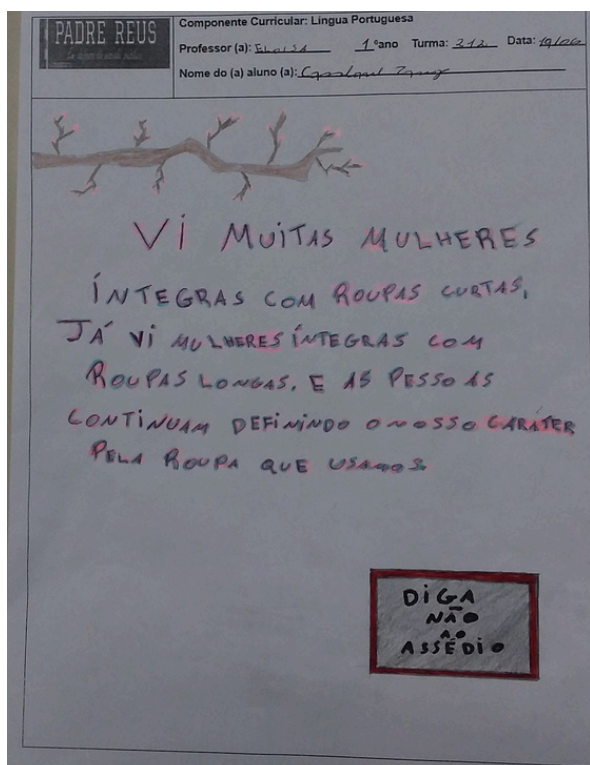 PADRE REUS
Componente Curricular: Língua Portuguesa
Professor (a): ELOISA 1 ºano Turma: 312 Data: 19/06
Nome do (a) aluno (a):
VI MUITAS MULHERES
ÍNTEGRAS COM ROUPAS CURTAS,
JÁ VI MULHERES ÍNTEGRAS COM
ROUPAS LONGAS, E AS PESSOAS
CONTINUAM DEFININDO O NOSSO CARÁTER
PELA ROUPA QUE USAMOS.
DIGA
NÃO
AO
ASSÉDIO